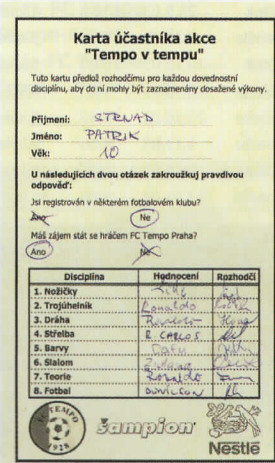 Karta účastníka akce
"Tempo v tempu"
Tuto kartu předlož rozhodčímu pro každou dovednostní
disciplínu, aby do ní mohly být zaznamenány dosažené výkony.
Přijmení: STRNAD
Jméno: PATRIK
Věk: 10
U následujících dvou otázek zakroužkuj pravdivou
odpověď:
Jsi registrován v některém fotbalovém klubu?
Ano Ne
Máš zájem stát se hráčem FC Tempo Praha?
Ano Ne
Disciplína Hodnocení Rozhodčí
1. Nožičky
2. Trojúhelník Ronaldo
3. Dráha
4. Střelba R. CARLOS
5. Barvy
6. Slalom
7. Teorie
8. Fotbal
TEMPO
1928
šampion
Nestlé